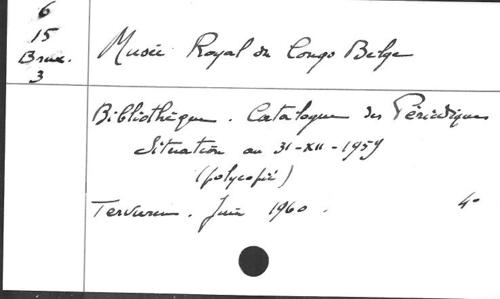 6
15
Brux.
3
Musée Royal du Congo Belge
Bibliothèque. Catalogue des Périodiques
Situation au 31-XII-1959
(polycopié)
Tervuren. Juin 1960. 4°